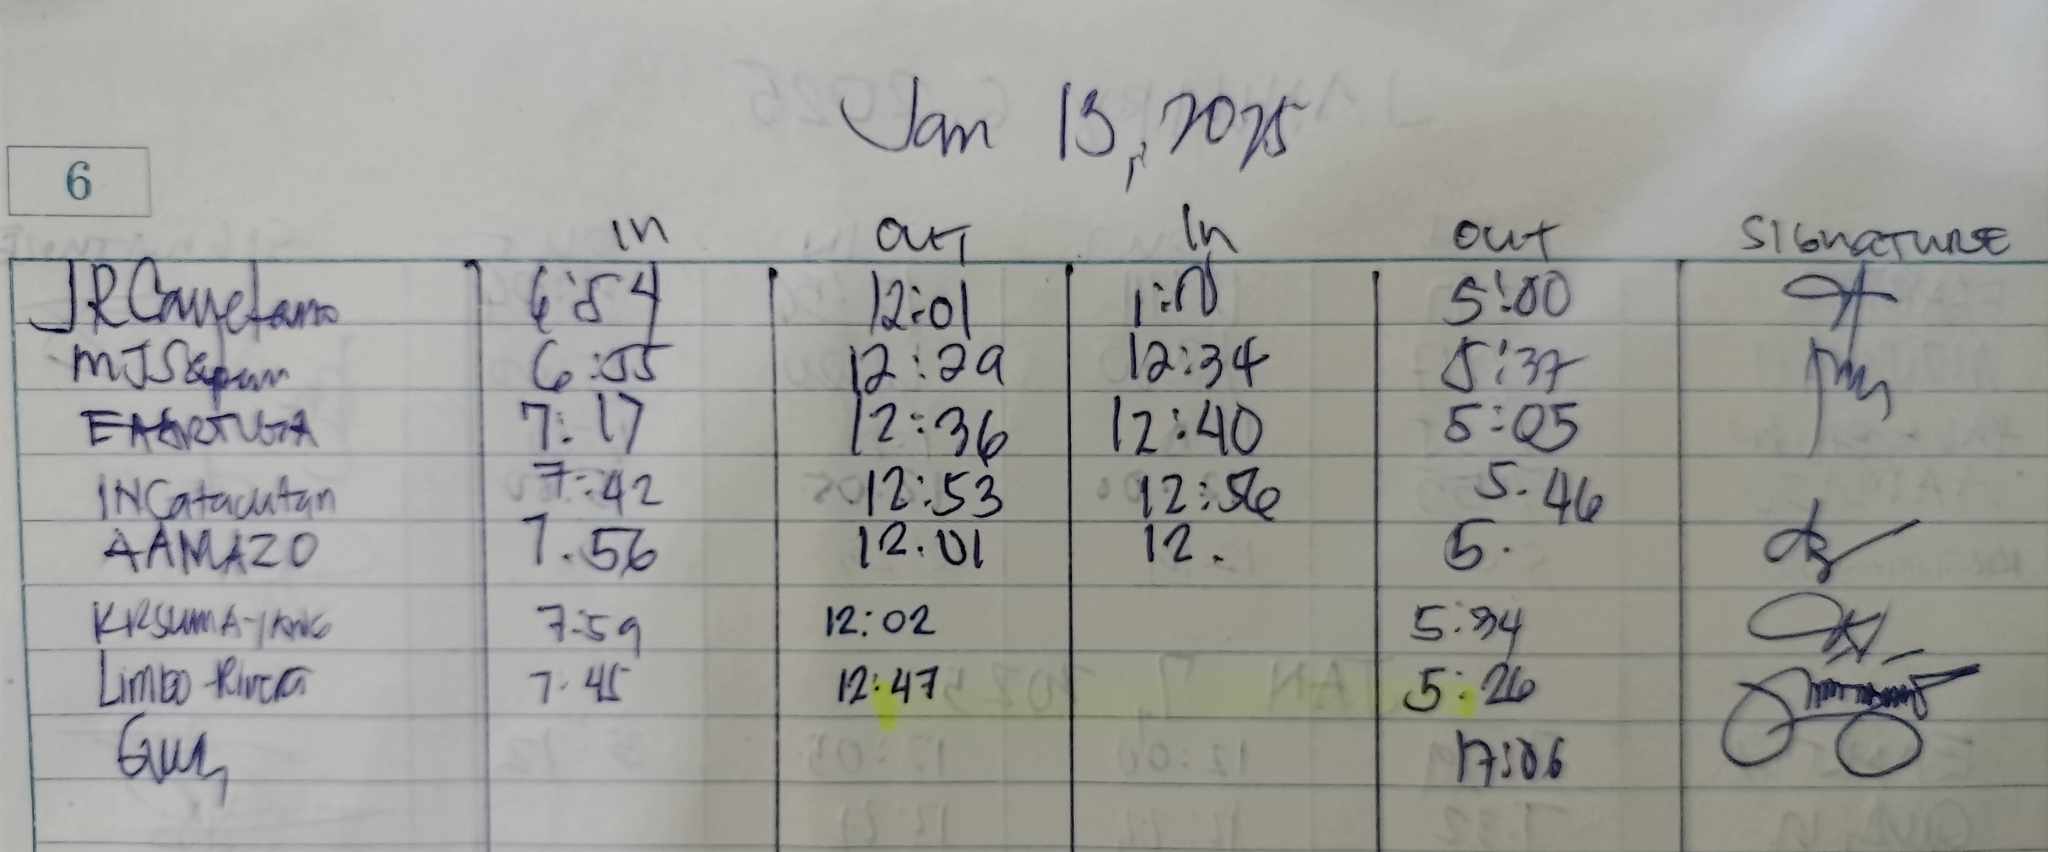 Jan 13, 2025
6
In OUT In OUT SIGNATURE
JRCayetano 6:54 12:01 5:00
MJS 6:55 12:29 12:34 5:37
7:17 12:36 12:40 5:05
INCatacutan 7:42 12:53 12:56 5.46
AAMAZO 7.56 12.01 12. 5.
7:59 12:02 5:34
Limbo-Rivera 7.45 12:47 5:26
17:06